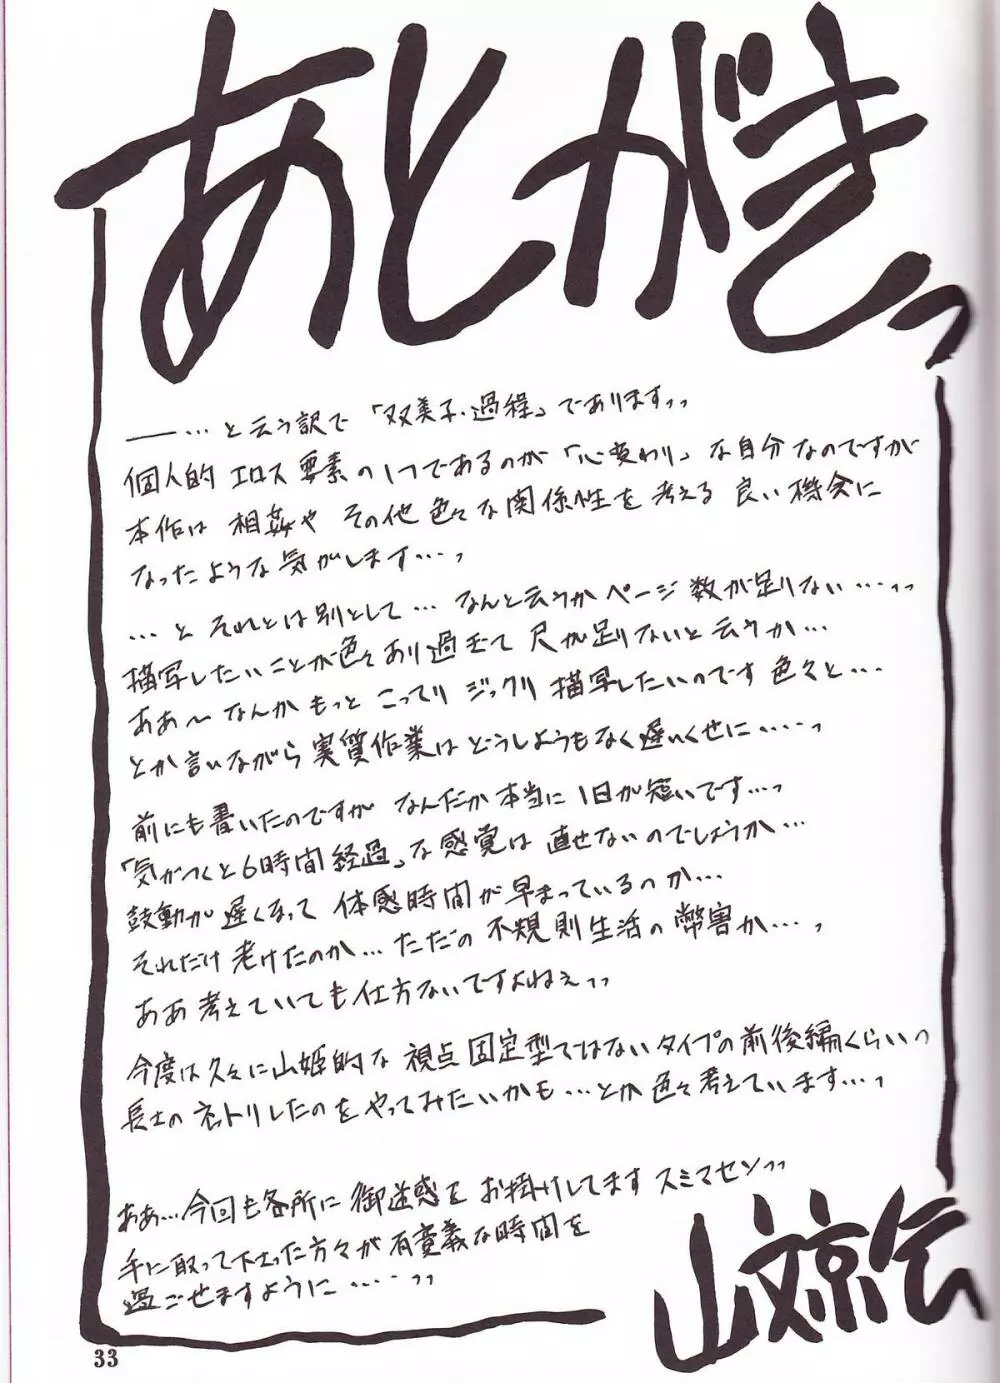 あとがきっ
――…と云う訳で「双美子・過程」でありますッッ
個人的エロス要素の1つであるのが「心変わり」な自分なのですが
本作は相姦やその他色々な関係性を考える良い機会に
なったような気がします…ッ
…とそれとは別として…なんと云うかページ数が足りない…ッッ
描写したいことが色々あり過ぎて尺が足りないと云うか…
ああ～なんかもっとこってりジックリ描写したいのです色々と…
とか言いながら実質作業はどうしようもなく遅いくせに……ッ
前にも書いたのですがなんだか本当に1日が短いです…ッ
「気がつくと6時間経過」な感覚は直せないのでしょうか…
鼓動が遅くなって体感時間が早まっているのか…
それだけ老けたのか…ただの不規則生活の弊害か…ッ
ああ考えていても仕方ないですよねぇッッ
今度は久々に山姫的な視点固定型ではないタイプの前後編くらいの
長さのネットリしたのをやってみたいかも…とか色々考えています…ッ
ああ…今回も各所に御迷惑をお掛けしてますスミマセンッッ
手に取って下さった方々が有意義な時間を
過ごせますように……ッッ
山文京伝
33